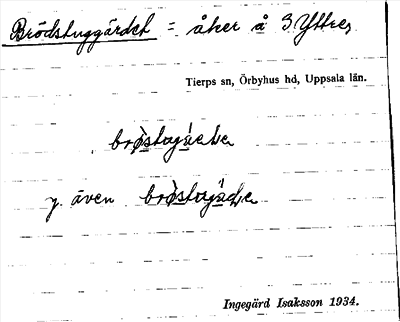 Brödstuggärdet = åker å 3 Yttre,
Tierps sn, Örbyhus hd, Uppsala län.
y. även
Ingegärd Isaksson 1934.